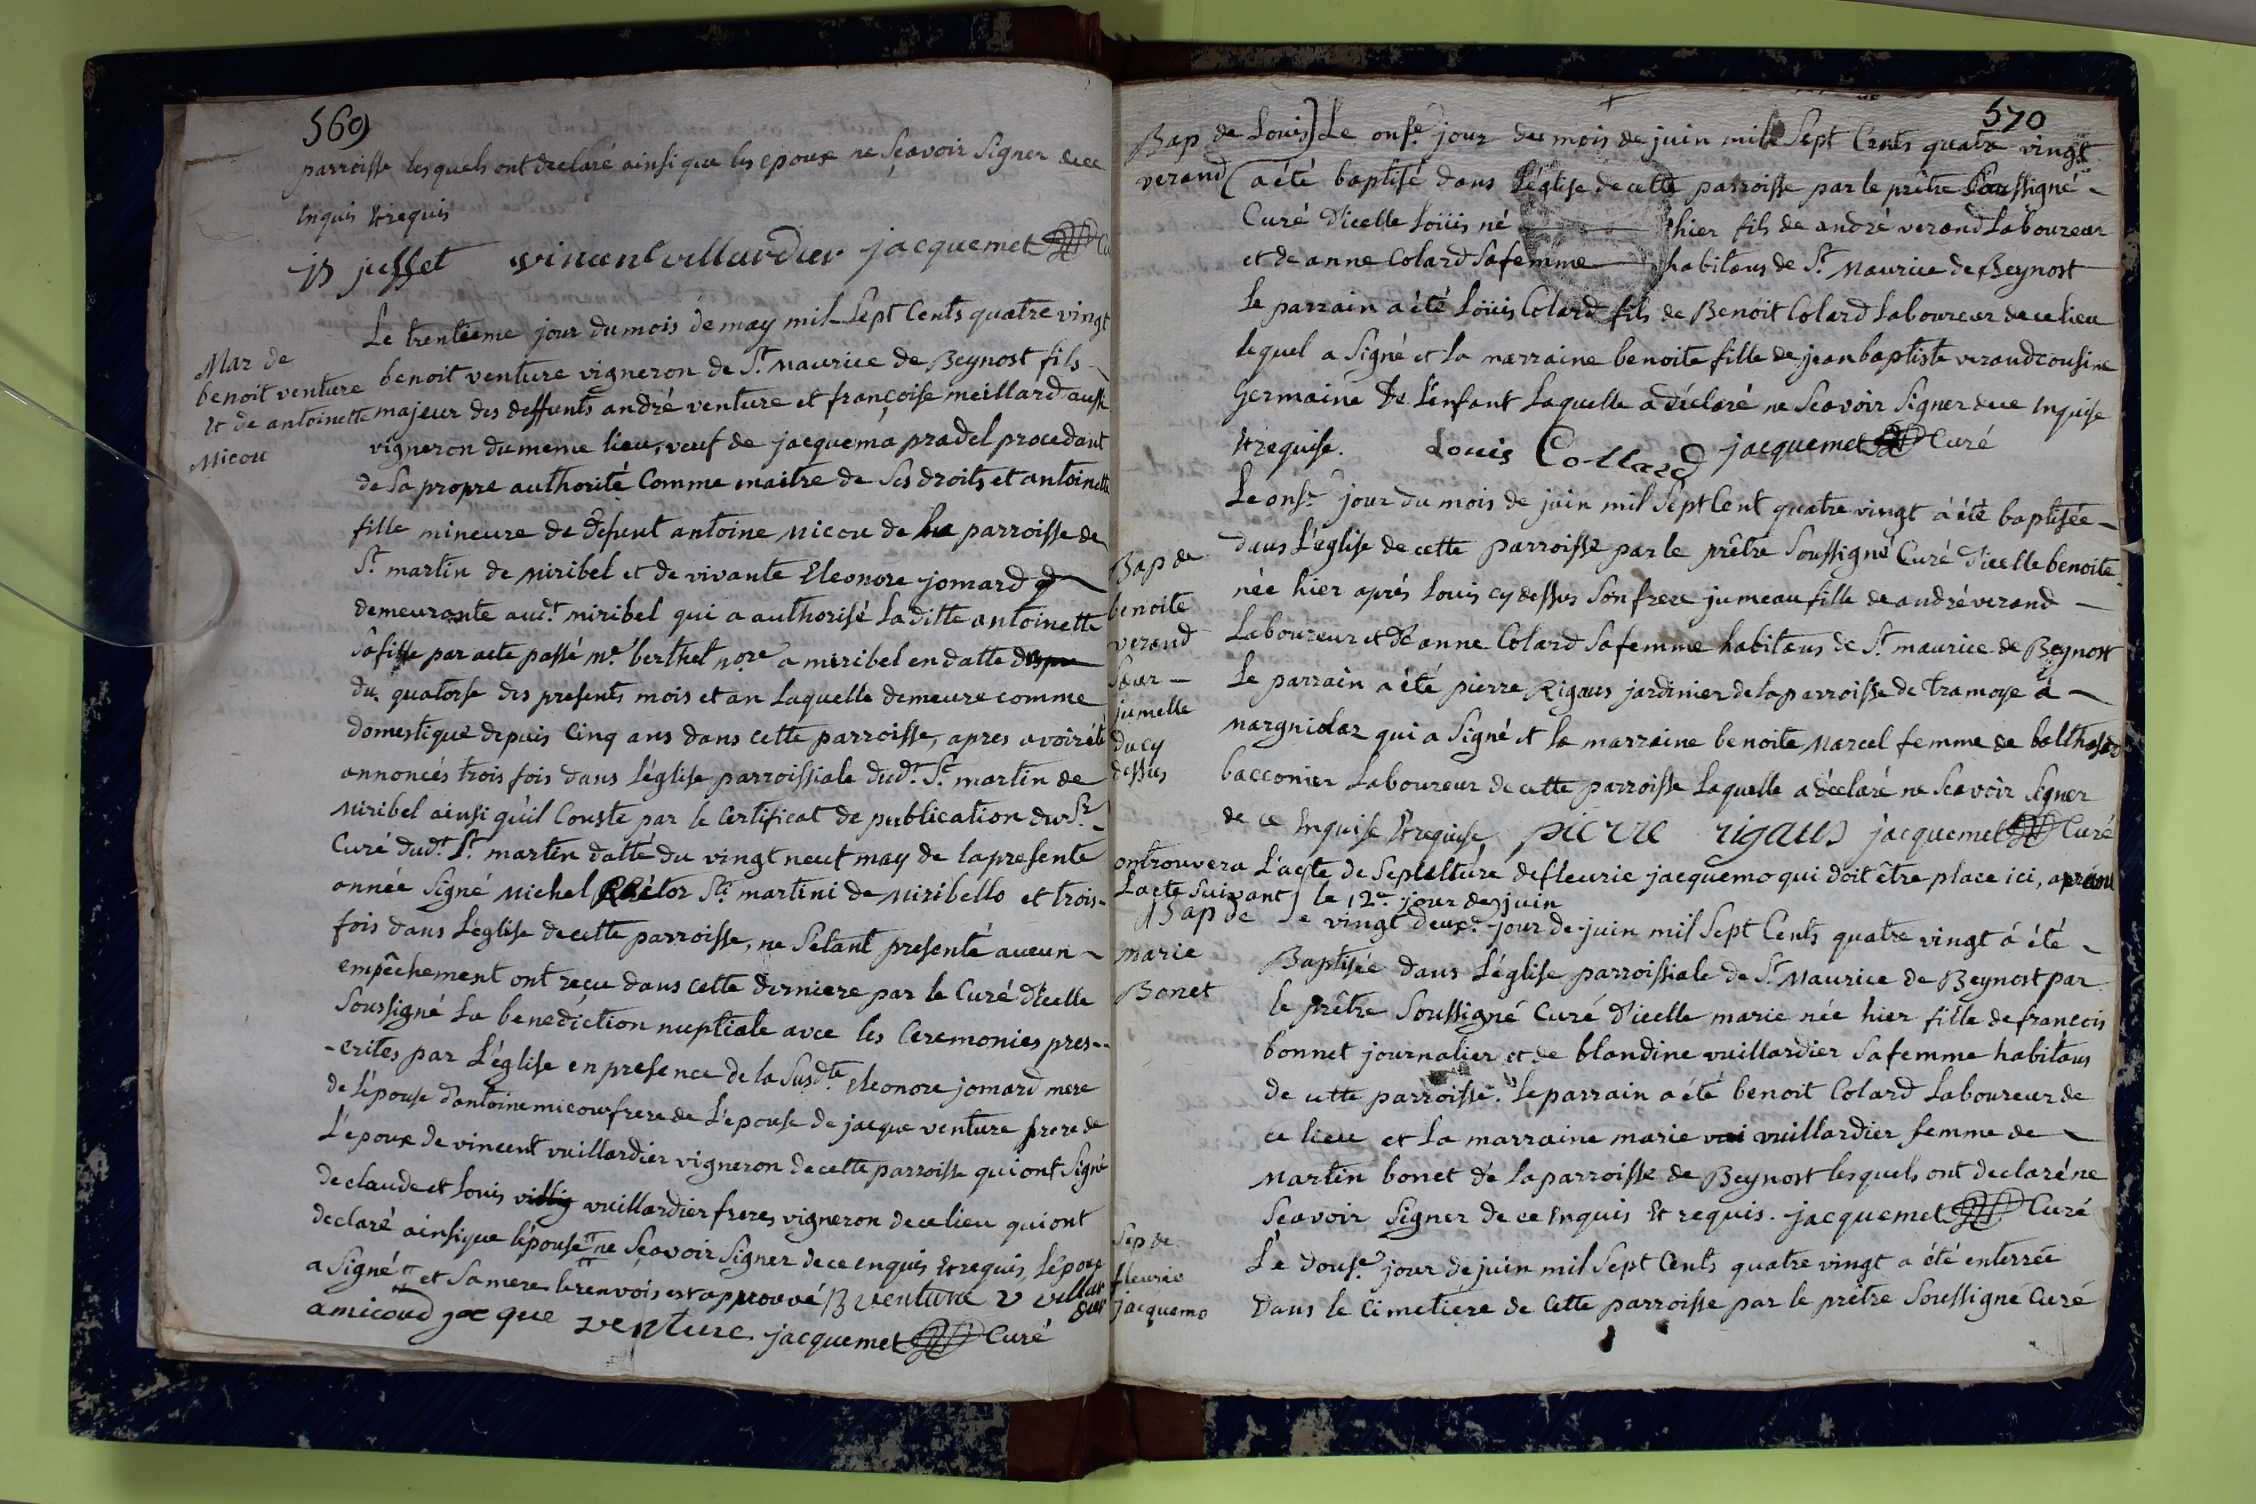 569
parroisse lesquels ont declaré ainsi que les epoux ne Sçavoir Signer de ce
Enquis et requis
jp juffet vincent vuillardier jacquemet Cu
Mar de
benoit venture
et de antoinette
Micou
Le trentieme jour du mois de may mil Sept Cents quatre vingt
benoit venture vigneron de St. Maurice de Beynost fils
majeur des deffunts andré venture et françoise meillard aussi
vigneron du meme lieu, veuf de jacquema pradel procedant
de Sa propre authorité Comme maitre de Ses droits et antoinette
fille mineure de defunt antoine Micou de la parroisse de
St. martin de Miribel et de vivante Eleonore jomard
demeurante aud.t miribel qui a authorisé Laditte antoinette
Sa fille par acte passé me. berthet nore a miribel en datte
du quatorse des presents mois et an Laquelle demeure comme
domestique depuis Cinq ans dans cette parroisse, apres avoir été
annoncés trois fois dans L'église parroissiale dud.t St. martin de
Miribel ainsi qu'il Conste par le Certificat de publication du Sr.
Curé dud.t St. martin datté du vingt neuf may de la presente
année Signé Michel Rector Sti. martini de Miribello et trois
fois dans L'église de cette parroisse, ne S'etant presenté aucun
empêchement ont reçu dans cette derniere par le Curé d'icelle
Soussigné La benediction nuptiale avec les Ceremonies pres-
-crites par L'église en presence de la Susd.te Eleonore jomard mere
de L'épouse d'antoine micou frere de L'epouse de jacque venture frere de
L'epoux de vincent vuillardier vigneron de cette parroisse qui ont Signé
de claude et Louis vuillardier freres vigneron de ce lieu qui ont
declaré ainsi que L'épouse ne Sçavoir Signer de ce enquis et requis, L'époux
a Signé et Sa mere le renvois est approuvé B venture v villar
dier
amicoud jacque venture jacquemet Curé
570
Bap de Louis
verand
Le onse. jour du mois de juin mil Sept Cents quatre vingt
a été baptisé dans L'église de cette parroisse par le prêtre Soussigné
Curé d'icelle Loüis né hier fils de andré verand Laboureur
et de anne Colard Sa femme habitans de St. Maurice de Beynost
Le parrain a été Loüis Colard fils de Benoit Colard Laboureur de ce lieu
lequel a Signé et La marraine benoite fille de jean baptiste verand cousine
Germaine de L'enfant Laquelle a déclaré ne Scavoir Signer de ce Enquise
et requise. Louis Collard jacquemet Curé
Bap de
benoite
verand
Sœur
jumelle
du cy
dessus
Le onse. jour du mois de juin mil Sept Cent quatre vingt á été baptisée
dans L'eglise de cette parroisse par le prêtre Soussigné Curé d'icelle benoite
née hier aprés Louis cy dessus Son frere jumeau fille de andré verand
Laboureur et de anne Colard Sa femme habitans de St. maurice de Beynost
Le parrain a été pierre Rigaus jardinier de la parroisse de tramoye á
margniolaz qui a Signé et la marraine benoite Marcel femme de balthasar
bacconier Laboureur de cette parroisse Laquelle a déclaré ne Scavoir Signer
de ce Enquise Et requise pierre rigaus jacquemet Curé
on trouvera L'acte de Sepulture de fleurie jacquemo qui doit être place ici, aprés
L'acte Suivant le 12e jour de juin
Bap de
Marie
Bonet
Le vingt deuxe. jour de juin mil Sept Cents quatre vingt á été
Baptisée dans L'église parroissiale de St. Maurice de Beynost par
le prêtre Soussigné Curé d'icelle marie née hier fille de francois
bonnet journalier et de blandine vuillardier Sa femme habitans
de cette parroisse. Le parrain a été benoit Colard Laboureur de
ce lieu et La marraine marie vuillardier femme de
Martin bonet de La parroisse de Beynost lesquels ont declaré ne
Scavoir Signer de ce Enquis Et requis. jacquemet Curé
Sep de
fleurie
jacquemo
Le douse. jour de juin mil Sept Cents quatre vingt a été enterrée
Dans le Cimetiere de Cette parroisse par le prêtre Soussigné Curé